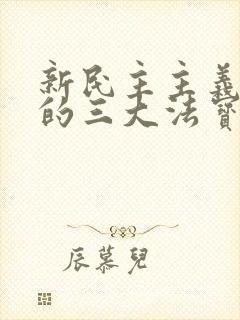 新民主主義
的三大法寶
辰慕兒